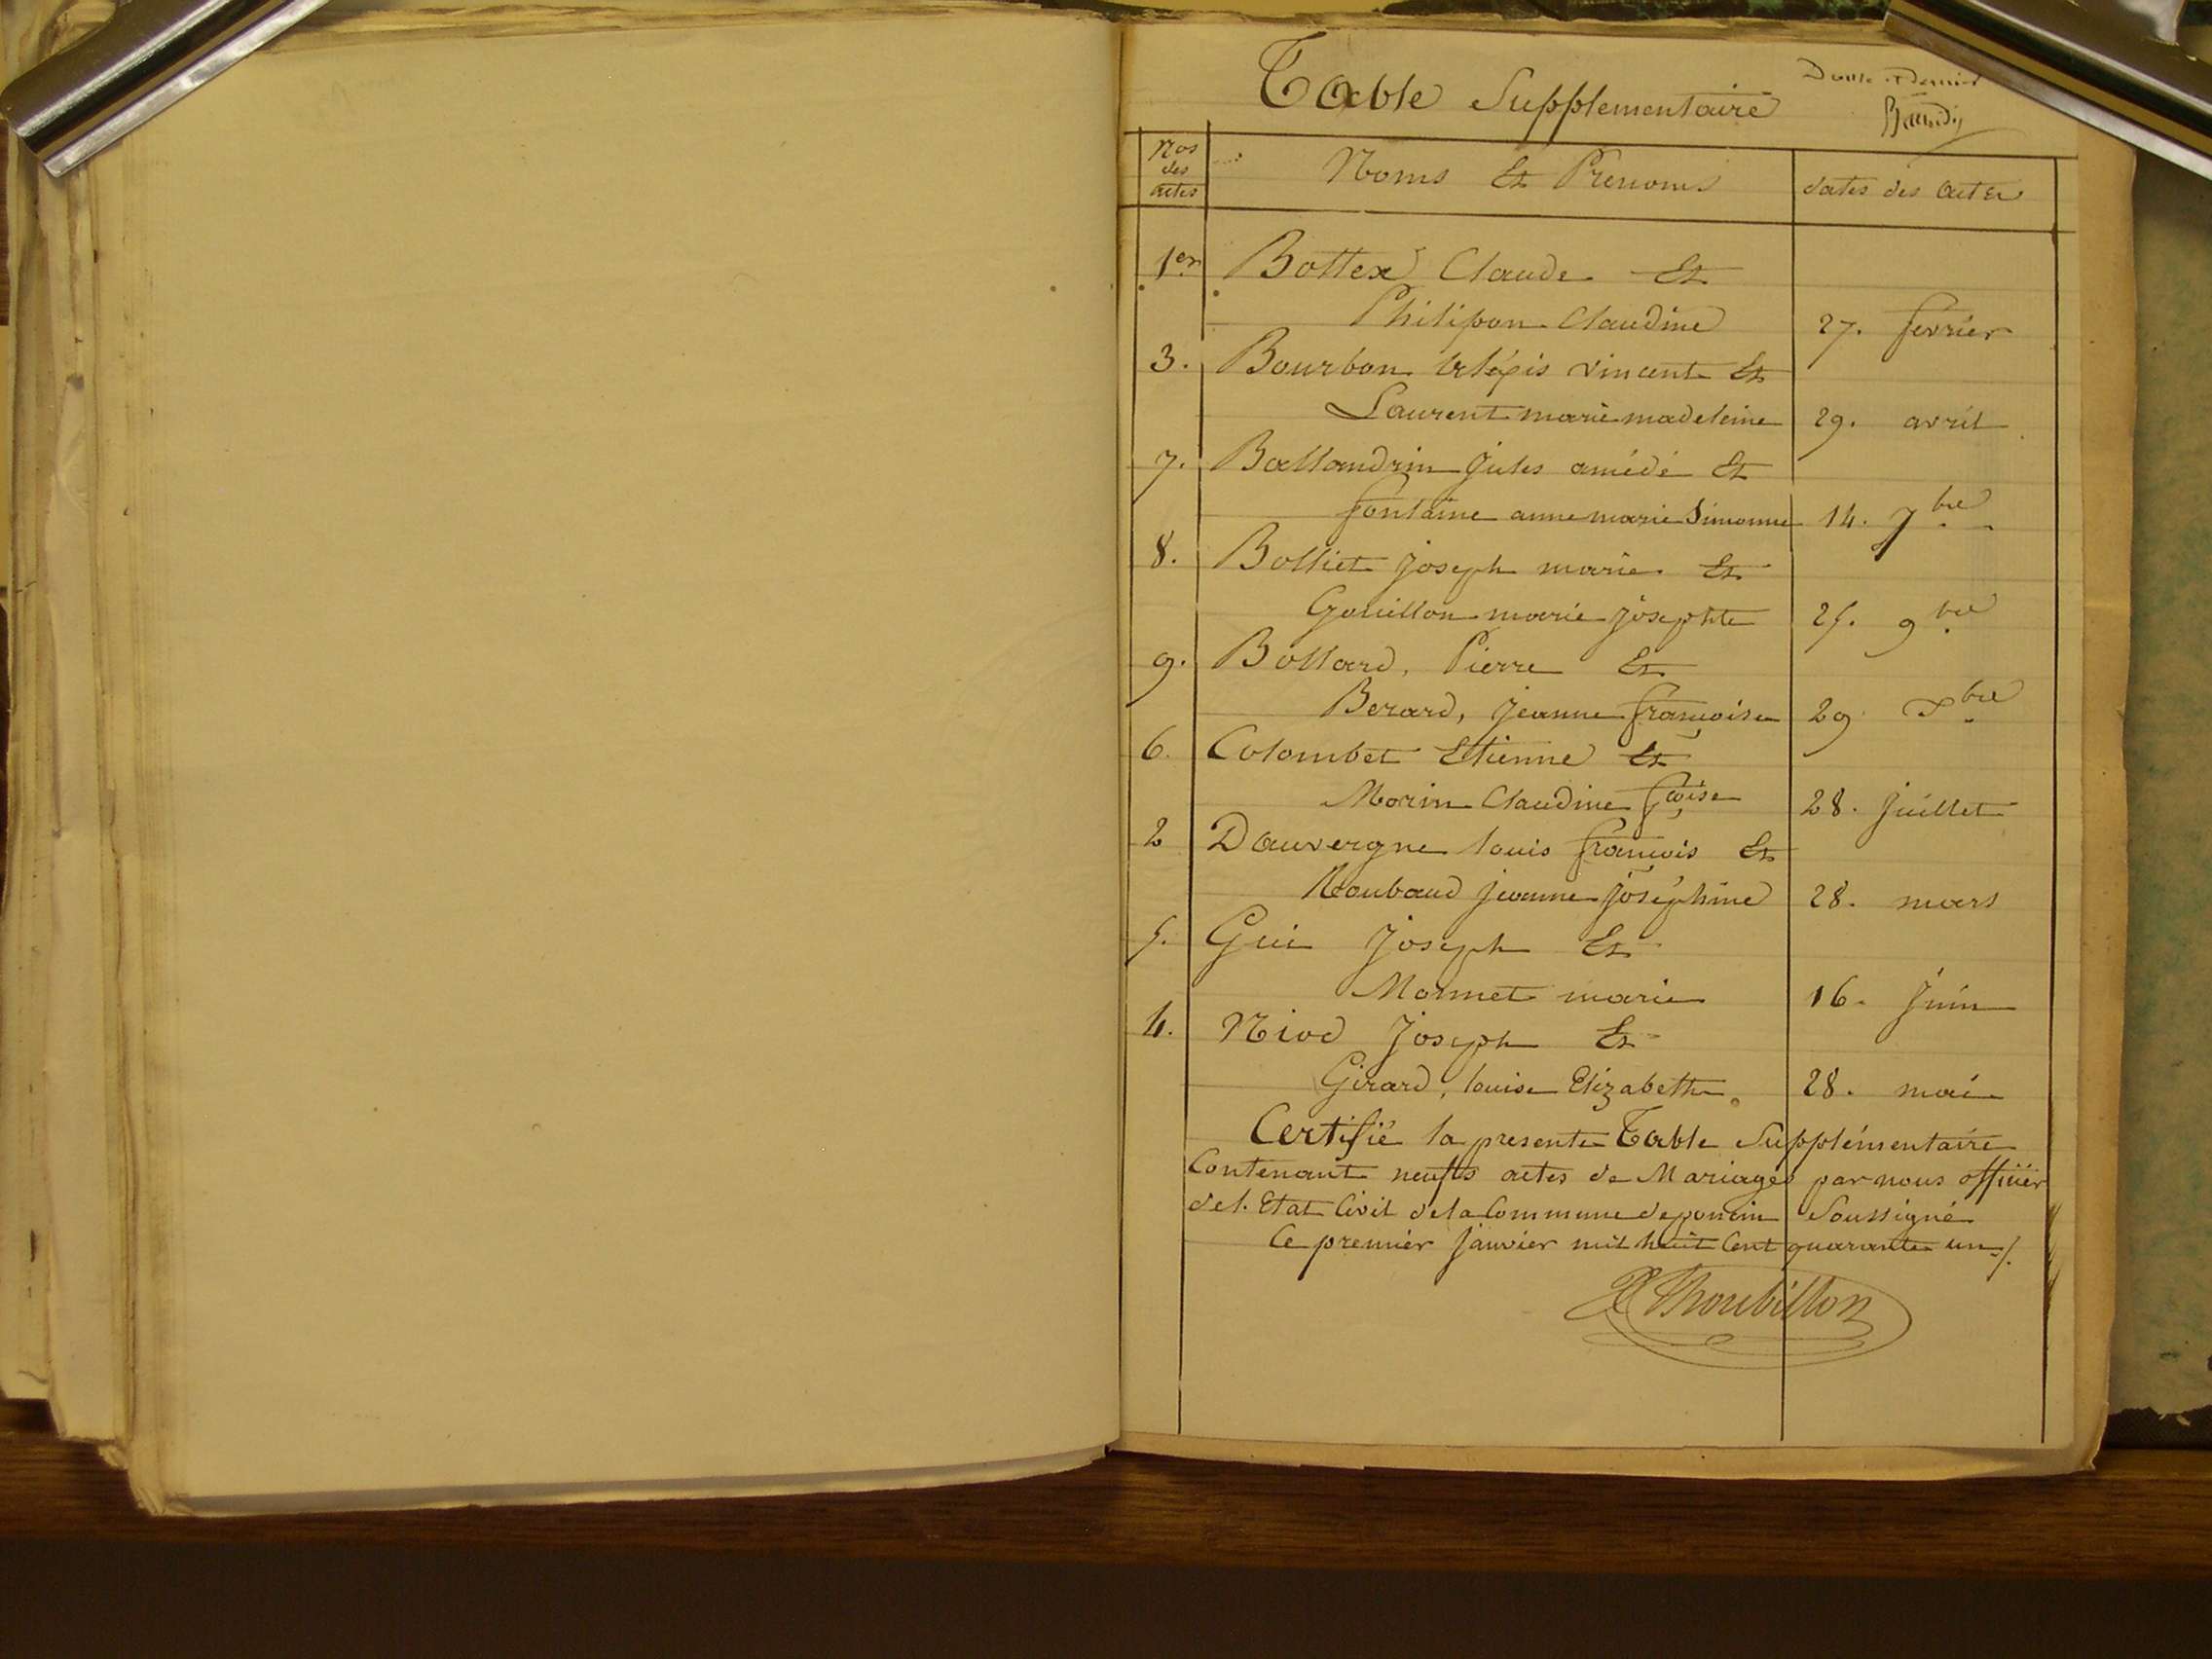 Table Supplementaire
Nos des actes
Noms Et Prenoms
dates des actes
1er Bottex Claude Et
Philipon Claudine 27. fevrier
3. Bourbon Alexis vincent Et
Laurent marie madeleine 29. avril
7. Ballandrin Jules amédé Et
fontaine anne marie Simonne 14. 7bre
8. Bolliet joseph marie Et
Gouillon marie josephte 25. 9bre
9. Bollard, Pierre Et
Berard, jeanne françoise 29 Xbre
6. Colombet Etienne Et
Morin Claudine fçoise 28. juillet
2 Dauvergne louis francois Et
Roubaud jeanne joséphine 28. mars
5. Gui Joseph Et
Monnet marie 16. Juin
4. Niod Joseph Et
Girard, louise Elizabeth. 28. mai
Certifié la presente Table Supplémentaire
Contenant neufts actes de Mariages par nous officier
de l. Etat Civil de la Commune de poncin Soussigné
Ce premier janvier mil huit Cent quarante un ./.
Thoubillon